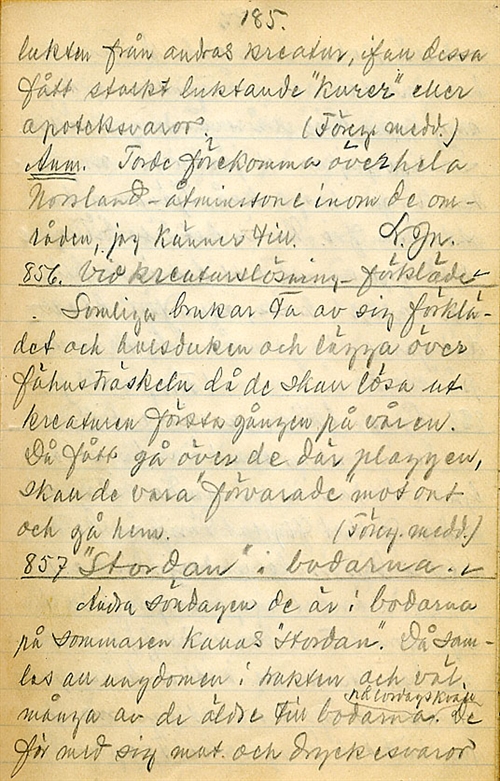 185.
lukten från andras kreatur, ifall dessa
fått starkt luktande "kurer" eller
apoteksvaror. (Föreg. medd.)
Anm. Torde förekomma över hela
Norrland - åtminstone inom de om-
råden, jag känner till. L. Jn.
856. Vid kreaturslösning - förklädet
Somliga brukar ta av sig förklä-
det och halsduken och lägga över
fähuströskeln då de skall lösa ut
kreaturen första gången på våren.
Då fått gå över de där plaggen,
skall de vara "förvarade" mot ont
och gå hem. (Föreg. medd.)
857 "Stordan" i bodarna.
Andra söndagen de är i bodarna
på sommaren kallas "stordan". Då sam-
las all ungdomen i trakten och väl
på lördagskväll
många av de äldre till bodarna. De
för med sig mat och dryckesvaror